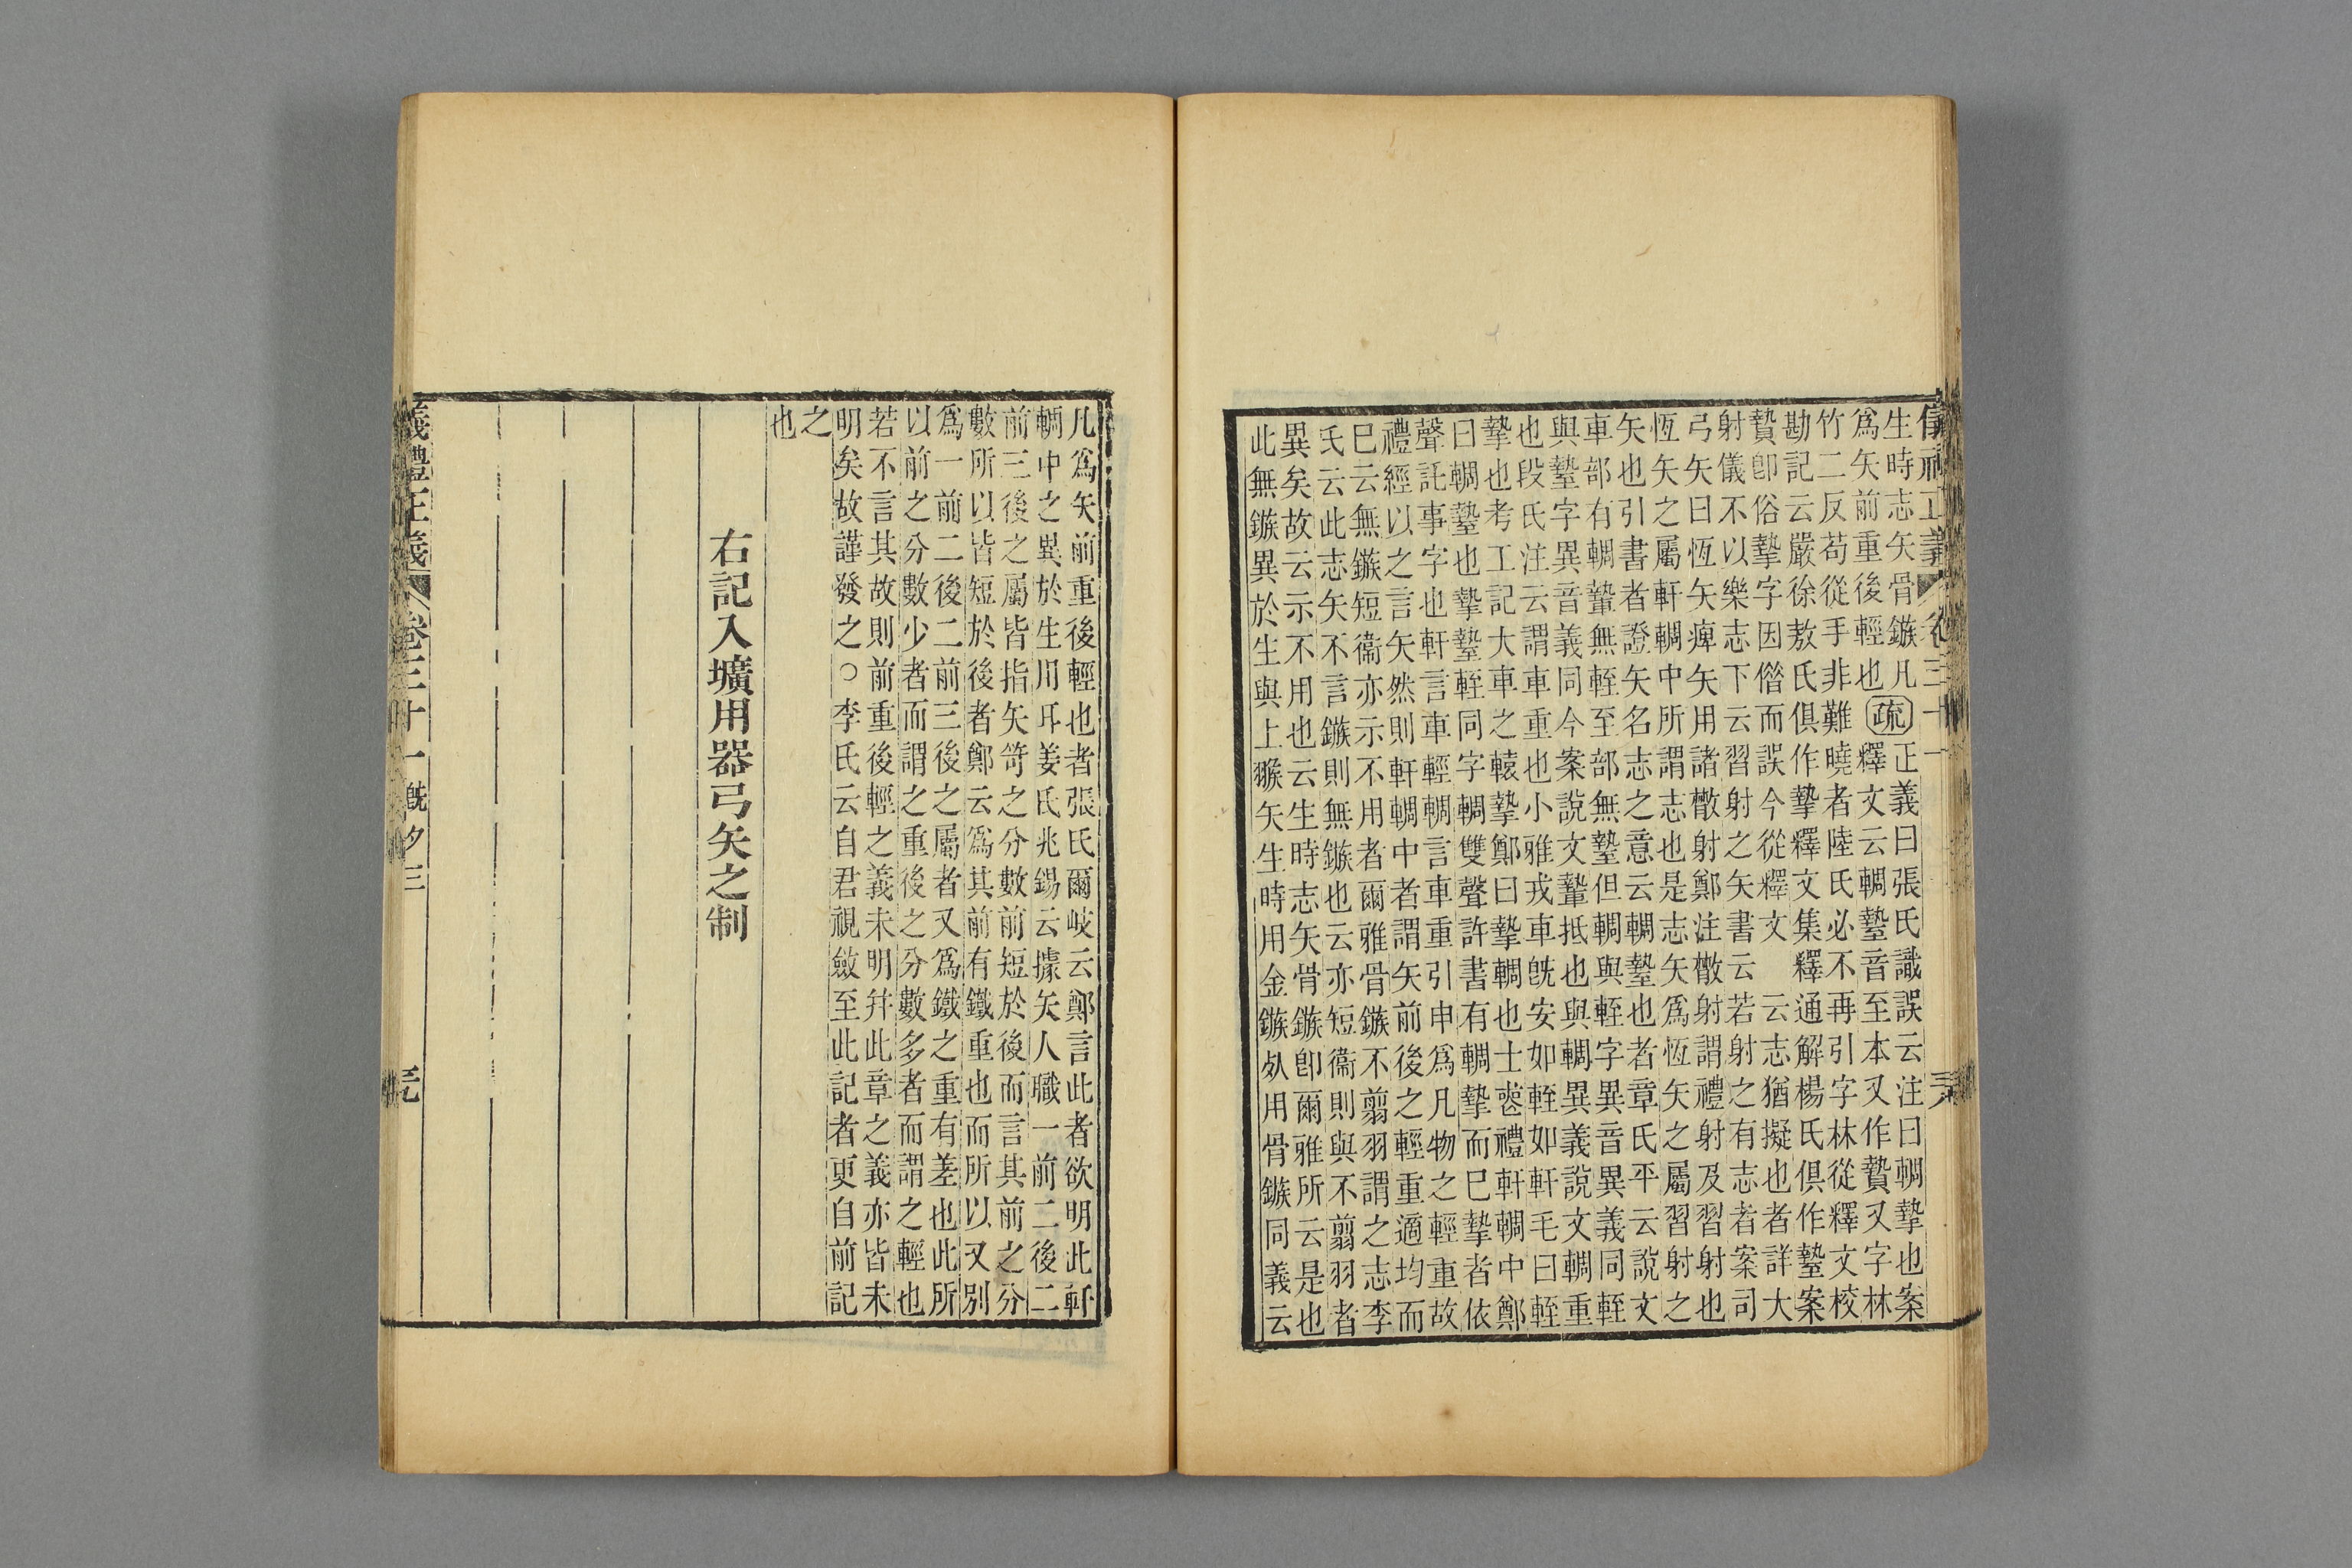 生時志矢骨鏃凡
爲矢前重後輕也疏
正義曰張氏識誤云注曰輖摯也案
釋文云輖墊音至本又作贄又字林
竹二反茍從手非難曉者陸氏必不再引字林從釋文校
勘記云嚴徐敖氏俱作摯釋文集釋通解楊氏俱作墊案
贄卽俗摯字因偕而誤今從釋文 云志猶擬也者詳大
射儀不以樂志下云習射之矢書云若射之有志者案司
弓矢曰恆矢痺矢用諸㪚射鄭注㪚射謂禮射及習射也
恆矢之屬軒輖中所謂志也是志矢爲恆矢之屬習射之
矢也引書者證矢名志之意云輖墊也者章氏平云說文
車部有輖䡹無輊至部無墊但輖與輊字異音異義同輊
與墊字異音義同今案說文䡹抵也與輖異義說文輖重
也段氏注云謂車重也小雅戎車旣安如輊如軒毛曰輊
摯也考工記大車之轅摯鄭曰摯輖也士喪禮軒輖中鄭
曰輖墊也摯墊輊同字輖雙聲許書有輖摯而巳摯者依
聲託事字也軒言車輕輖言車重引申爲凡物之輕重故
禮經以之言矢然則軒輖中者謂矢前後之輕重適均而
巳云無鏃短衞亦示不用者爾雅骨鏃不翦羽謂之志李
氏云此志矢不言鏃則無鏃也云亦短衞則與不翦羽者
異矣故云示不用也云生時志矢骨鏃卽爾雅所云是也
此無鏃異於生與上翭矢生時用金鏃㱕用骨鏃同義云
凡爲矢前重後輕也者張氏爾岐云鄭言此者欲明此軒
輖中之異於生用耳姜氏兆錫云據矢人職一前二後二
前三後之屬皆指矢笴之分數前短於後而言其前之分
數所以皆短於後者鄭云爲其前有鐵重也而所以又別
爲一前二後二前三後之屬者又爲鐵之重有差也此所
以前之分數少者而謂之重後之分數多者而謂之輕也
若不言其故則前重後輕之義未明幷此章之義亦皆未
明矣故謹發之○李氏云自君視斂至此記者更自前記
之
也
右記入壙用器弓矢之制
義禮正義 卷三十一 旣夕三